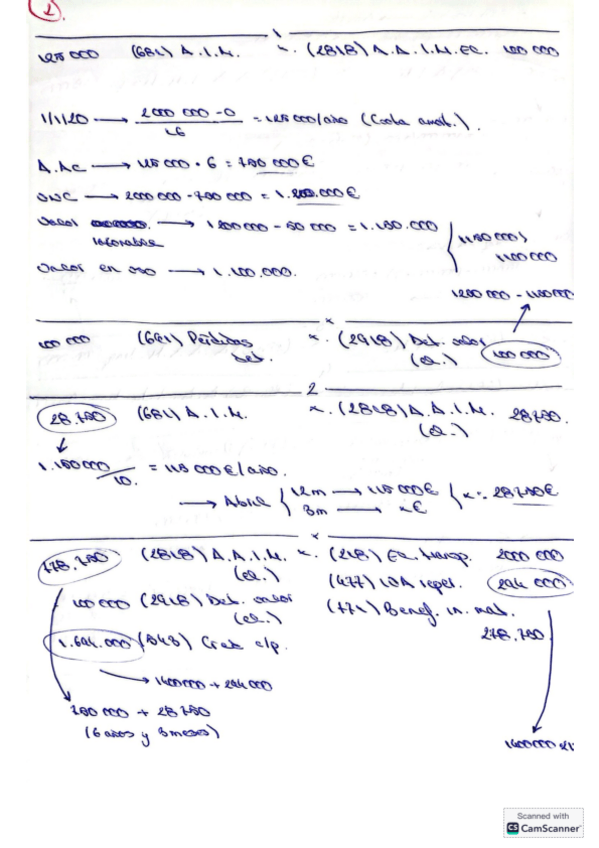 1
1
125 000 (681) A.I.M. x. (2818) A.A.I.M. EQ. 100 000
1/1/20 → 2000 000 - 0 = 125 000/año (Cuota amort.).
16
A.AC → 125 000 · 6 = 750 000 €
VNC → 2000 000 - 700 000 = 1.200.000 €
Valor → 1 200 000 - 50 000 = 1.150.000
1150 000 >
1100 000
Valor en uso → 1.100.000.
1200 000 - 1100 000
x
100 000 (691) Pérdidas x. (2918) Det. valor
Det. (eq.) 100 000
2
28.750 (681) A.I.M. x. (2818) A.A.I.M. 28750.
(eq.)
1.150 000 / 10. = 115 000 €/año.
→ Abril { 12m → 115 000 € } x = 28.750 €
3m → x €
x
778.750 (2818) A.A.I.M. x. (218) Eq. transp. 2000 000
(eq.) (477) IVA reper. 294 000
100 000 (2918) Det. valor (771) Benef. in. mat.
(eq.) 278.750
1.694.000 (543) Cred c/p.
→ 1400 000 + 294 000
750 000 + 28 750
(6 años y 3 meses)
1400 000 · 21
Scanned with
CS CamScanner